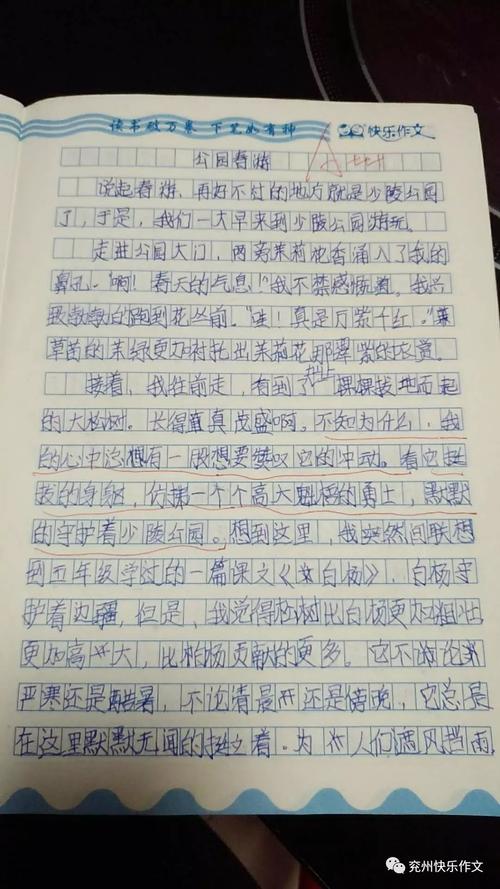 读书破万卷 下笔如有神 快乐作文
公园春游
说起春游、再好不过的地方就是少陵公园
了，于是，我们一大早来到少陵公园游玩。
走进公园大门，两旁茉莉花香涌入了我的
鼻孔“啊！春天的气息！”我不禁感慨道。我兴
致勃勃的跑到花丛前。“哇！真是万紫千红。”
草苗的茉绿更加衬托出茉莉花那翠紫的
接着，我往前走，看到了一棵棵拔地而起
的大松树。长得真茂盛啊。不知为什么，我
的心中总想有一股想要赞叹它的冲动。看它挺
拔的身躯，仿佛一个个高大魁梧的勇士，默默
的守护着少陵公园。想到这里，我突然间联想
到五年级学过的一篇课文《白杨》，白杨守
护着边疆，但是，我觉得松树比白杨更加粗壮
更加高大，比柏杨贡献的更多。它不论
严寒还是酷暑，不论清晨还是傍晚，它总是
在这里默默无闻的挺立着。为人们遮风挡雨，
兖州快乐作文